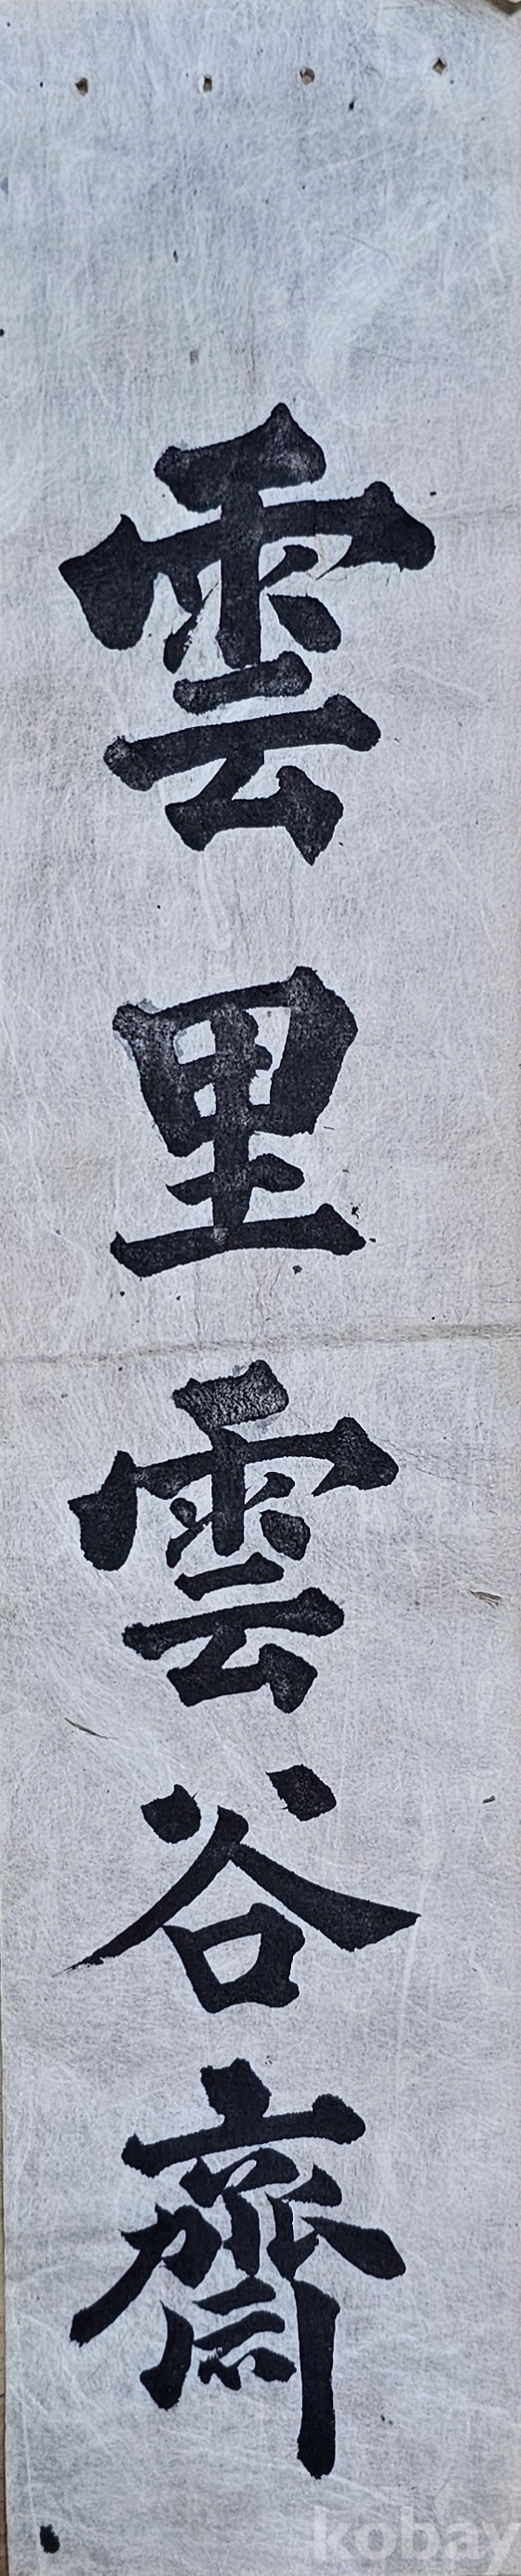 雲里雲谷齋
kobay